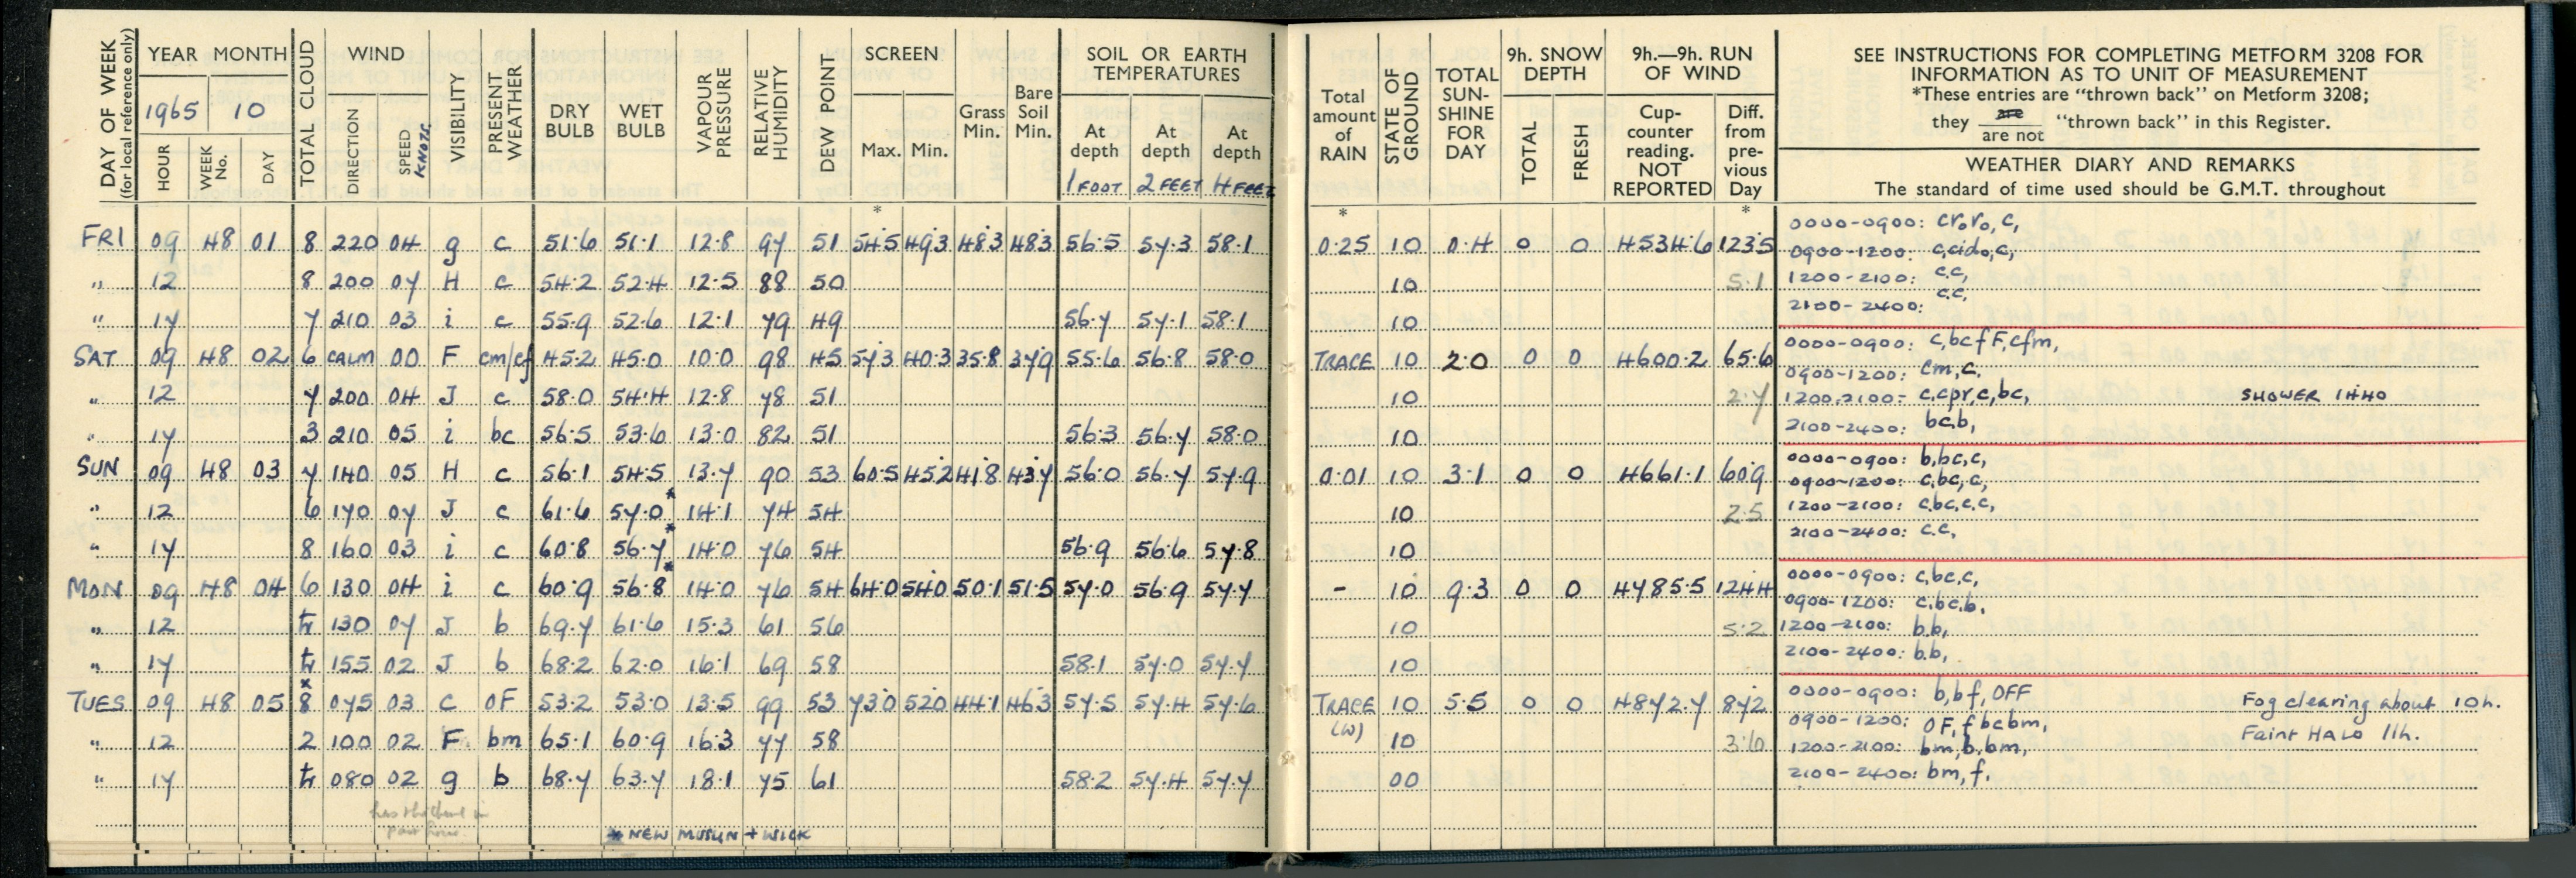 DAY OF WEEK
(for local reference only)
YEAR MONTH
1965 10
HOUR WEEK No. DAY
TOTAL CLOUD
WIND
DIRECTION SPEED KNOTS
VISIBILITY
PRESENT WEATHER
DRY BULB
WET BULB
VAPOUR PRESSURE
RELATIVE HUMIDITY
DEW POINT
SCREEN
Max. Min.
Grass Min.
Bare Soil Min.
SOIL OR EARTH TEMPERATURES
At depth At depth At depth
1 FOOT 2 FEET 4 FEET
*
FRI 09 48 01 8 220 04 g c 51.6 51.1 12.8 97 51 54.5 49.3 48.3 48.3 56.5 57.3 58.1
" 12 8 200 07 H c 54.2 52.4 12.5 88 50
" 17 7 210 03 i c 55.9 52.6 12.1 79 49 56.7 57.1 58.1
SAT 09 48 02 6 CALM 00 F cm/cf 45.2 45.0 10.0 98 45 57.3 40.3 35.8 37.9 55.6 56.8 58.0
" 12 7 200 04 J c 58.0 54.4 12.8 78 51
" 17 3 210 05 i bc 56.5 53.6 13.0 82 51 56.3 56.7 58.0
SUN 09 48 03 7 140 05 H c 56.1 54.5 13.7 90 53 60.5 45.2 41.8 43.7 56.0 56.7 57.9
" 12 6 170 07 J c 61.6 57.0* 14.1 74 54
" 17 8 160 03 i c 60.8 56.7* 14.0 76 54 56.9 56.6 57.8
MON 09 48 04 6 130 04 i c 60.9 56.8* 14.0 76 54 64.0 54.0 50.1 51.5 57.0 56.9 57.7
" 12 tr 130 07 J b 69.7 61.6 15.3 61 56
" 17 tr 155 02 J b 68.2 62.0 16.1 69 58 58.1 57.0 57.7
TUES 09 48 05 x8 075 03 C OF 53.2 53.0 13.5 99 53 73.0 52.0 44.1 46.3 57.5 57.4 57.6
" 12 2 100 02 F bm 65.1 60.9 16.3 77 58
" 17 tr 080 02 g b 68.7 63.7 18.1 75 61 58.2 57.4 57.7
* NEW MUSLIN + WICK
Total amount of RAIN
STATE OF GROUND
TOTAL SUN-SHINE FOR DAY
9h. SNOW DEPTH
TOTAL FRESH
9h.—9h. RUN OF WIND
Cup-counter reading. NOT REPORTED
Diff. from pre-vious Day
SEE INSTRUCTIONS FOR COMPLETING METFORM 3208 FOR
INFORMATION AS TO UNIT OF MEASUREMENT
*These entries are "thrown back" on Metform 3208;
they are / are not "thrown back" in this Register.
WEATHER DIARY AND REMARKS
The standard of time used should be G.M.T. throughout
* *
0000-0900: croro, c,
0.25 10 0.4 0 0 4534.6 123.5 0900-1200: c,cido,c,
10 5.1 1200-2100: c.c,
10 2100-2400: c.c,
0000-0900: c,bcfF,cfm,
TRACE 10 2.0 0 0 4600.2 65.6 0900-1200: cm,c.
10 2.7 1200-2100- c.cpr,c,bc, SHOWER 1440
10 2100-2400: bc,b,
0000-0900: b,bc,c,
0.01 10 3.1 0 0 4661.1 60.9 0900-1200: c,bc,c,
10 2.5 1200-2100: c,bc,c,c,
10 2100-2400: c.c,
0000-0900: c,bc,c,
- 10 9.3 0 0 4785.5 124.4 0900-1200: c,bc,b,
10 5.2 1200-2100: b.b,
10 2100-2400: b.b,
TRACE (W) 10 5.5 0 0 4872.7 87.2 0000-0900: b,bf,OFF Fog clearing about 10h.
0900-1200: OF,fbcbm,
10 3.6 1200-2100: bm,b,bm, Faint HALO 11h.
00 2100-2400: bm,f.